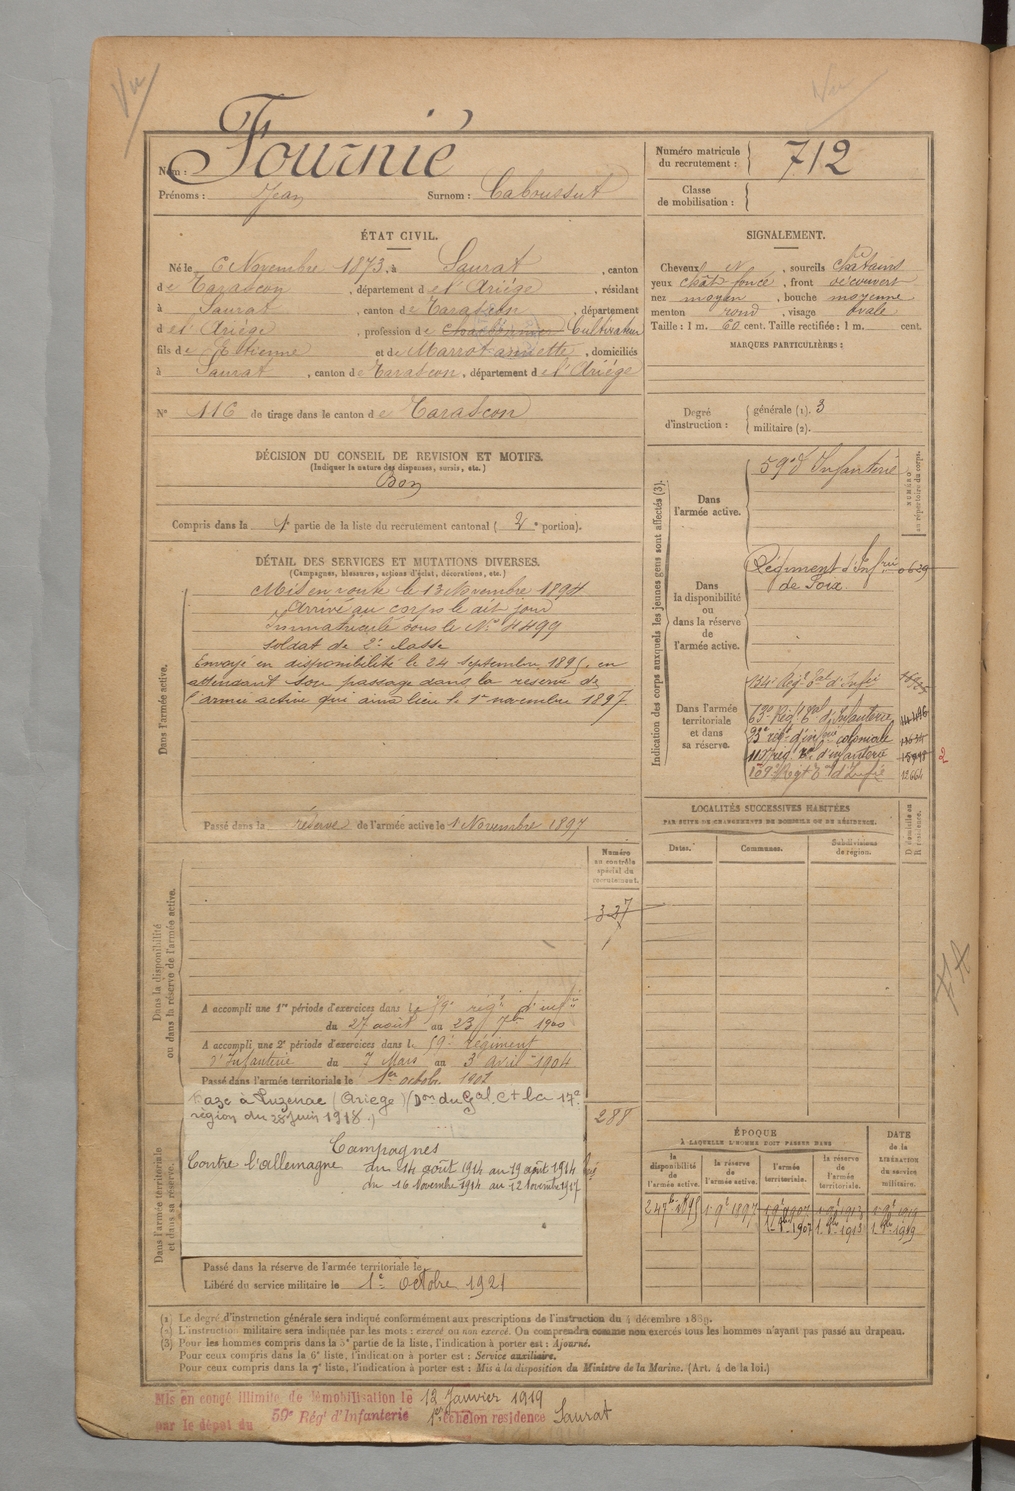 Vu
Vu
Nom : Fournié
Prénoms : Jean Surnom : Caboussut
Numéro matricule du recrutement : 712
Classe de mobilisation :
ÉTAT CIVIL.
Né le 6 Novembre 1873, à Saurat, canton
de Tarascon, département de l'Ariège, résidant
à Saurat, canton de Tarascon, département
de l'Ariège, profession de Cultivateur
fils de Etienne et de Marrot annette, domiciliés
à Saurat, canton de Tarascon, département de l'Ariège
N° 116 de tirage dans le canton de Tarascon
SIGNALEMENT.
Cheveux N, sourcils châtains
yeux chât foncé, front découvert
nez moyen, bouche moyenne
menton rond, visage ovale
Taille : 1 m. 60 cent. Taille rectifiée : 1 m. cent.
MARQUES PARTICULIÈRES :
Degré d'instruction : générale (1). 3
militaire (2).
DÉCISION DU CONSEIL DE REVISION ET MOTIFS.
(Indiquer la nature des dispenses, sursis, etc.)
Bon
Compris dans la 1e partie de la liste du recrutement cantonal (2e portion).
DÉTAIL DES SERVICES ET MUTATIONS DIVERSES.
(Campagnes, blessures, actions d'éclat, décorations, etc.)
Dans l'armée active.
Mis en route le 13 Novembre 1894
Arrivé au corps le dit jour
Immatriculé sous le N° 4499
soldat de 2e classe
Envoyé en disponibilité le 24 septembre 1895, en
attendant son passage dans la réserve de
l'armée active qui aura lieu le 1er novembre 1897
Passé dans la réserve de l'armée active le 1 Novembre 1897
Indication des corps auxquels les jeunes gens sont affectés (3).
NUMÉRO au répertoire du corps.
Dans l'armée active.
59e d'Infanterie
Dans la disponibilité ou dans la réserve de l'armée active.
Régiment d'Infrie 0629
de Foix.
Dans l'armée territoriale et dans sa réserve.
134e Régt tal d'Infie
63e Régt tal d'Infanterie
93e régt d'infrie coloniale
117e régt tal d'infanterie
169e Régt tal d'Infie 12664
2
LOCALITÉS SUCCESSIVES HABITÉES
PAR SUITE DE CHANGEMENTS DE DOMICILE OU DE RÉSIDENCE.
Dates.
Communes.
Subdivisions de région.
Dans la disponibilité ou dans la réserve de l'armée active.
Numéro au contrôle spécial du recrutement.
337
A accompli une 1re période d'exercices dans le 59e régt d'infie
du 27 août au 23 7bre 1900
A accompli une 2e période d'exercices dans le 59e régiment
d'Infanterie du 7 Mars au 3 avril 1904
Passé dans l'armée territoriale le 1er octobre 1907
Dans l'armée territoriale et dans sa réserve.
288
à Luzenac (Ariège) (Don du Gal Ct la 17e
région du 28 juin 1918.)
Campagnes
Contre l'allemagne du 14 août 1914 au 19 août 1914
du 16 Novembre 1914 au 12 Novembre 1917
Passé dans la réserve de l'armée territoriale le
Libéré du service militaire le 1er octobre 1921
ÉPOQUE
À LAQUELLE L'HOMME DOIT PASSER DANS
la disponibilité de l'armée active.
la réserve de l'armée active.
l'armée territoriale.
la réserve de l'armée territoriale.
DATE de la LIBÉRATION du service militaire.
24 7bre 1895
1 9e 1897
1 9e 1907
1 9e 1913
1 9e 1919
1 8bre 1907
1 8bre 1913
1 8bre 1919
(1) Le degré d'instruction générale sera indiqué conformément aux prescriptions de l'instruction du 4 décembre 1889.
(2) L'instruction militaire sera indiquée par les mots : exercé ou non exercé. On comprendra comme non exercés tous les hommes n'ayant pas passé au drapeau.
(3) Pour les hommes compris dans la 5e partie de la liste, l'indication à porter est : Ajourné.
Pour ceux compris dans la 6e liste, l'indication à porter est : Service auxiliaire.
Pour ceux compris dans la 7e liste, l'indication à porter est : Mis à la disposition du Ministre de la Marine. (Art. 4 de la loi.)
Mis en congé illimité de démobilisation le 12 Janvier 1919
par le dépôt du 59e Régt d'Infanterie 1er échelon résidence Saurat